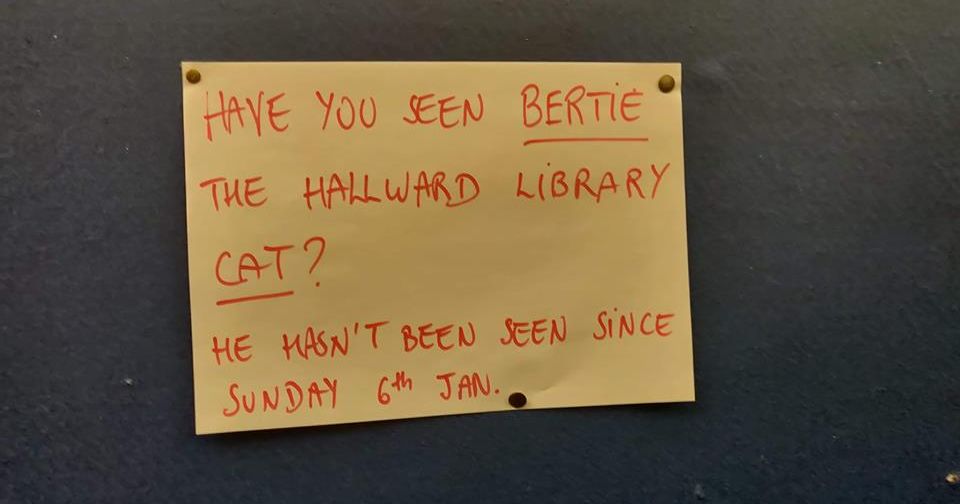 HAVE YOU SEEN BERTIE
THE HALLWARD LIBRARY
CAT?
HE HASN'T BEEN SEEN SINCE
SUNDAY 6th JAN.